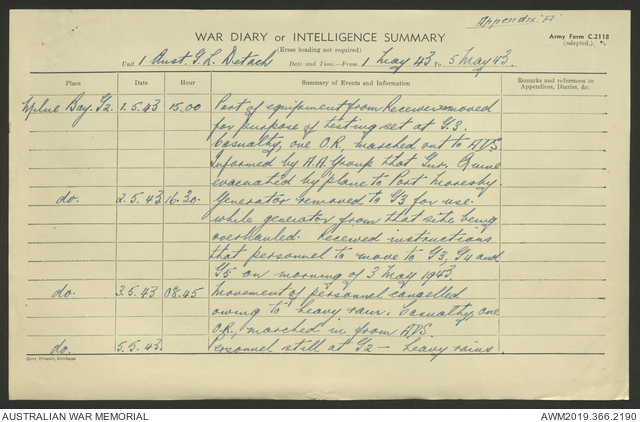 Appendix 'A'
WAR DIARY or INTELLIGENCE SUMMARY
Army Form C.2118
(Erase heading not required)
(adapted.)
Unit 1 Aust. G.L. Detach Date and Time.—From 1 May 43 To 5 May 43.
Place Date Hour Summary of Events and Information Remarks and references in Appendices, Diaries, &c.
Milne Bay. G2. 1.5.43 15.00 Part of equipment from Receiver removed
for purpose of testing set at G.3.
Casualty, one O.R., marched out to ADS.
Informed by A.A. Group that Gnr.
evacuated by plane to Port Moresby.
do. 2.5.43 16.30. Generator removed to G3 for use
while generator from that site being
overhauled. Received instructions
that personnel to move to G3, G4 and
G5 on morning of 3 May 1943.
do. 3.5.43 08.45 Movement of personnel cancelled
owing to heavy rain. Casualty, one
O.R., marched in from ADS.
do. 5.5.43. Personnel still at G2 — heavy rains
Govt. Printer, Brisbane
AUSTRALIAN WAR MEMORIAL
AWM2019.366.2190